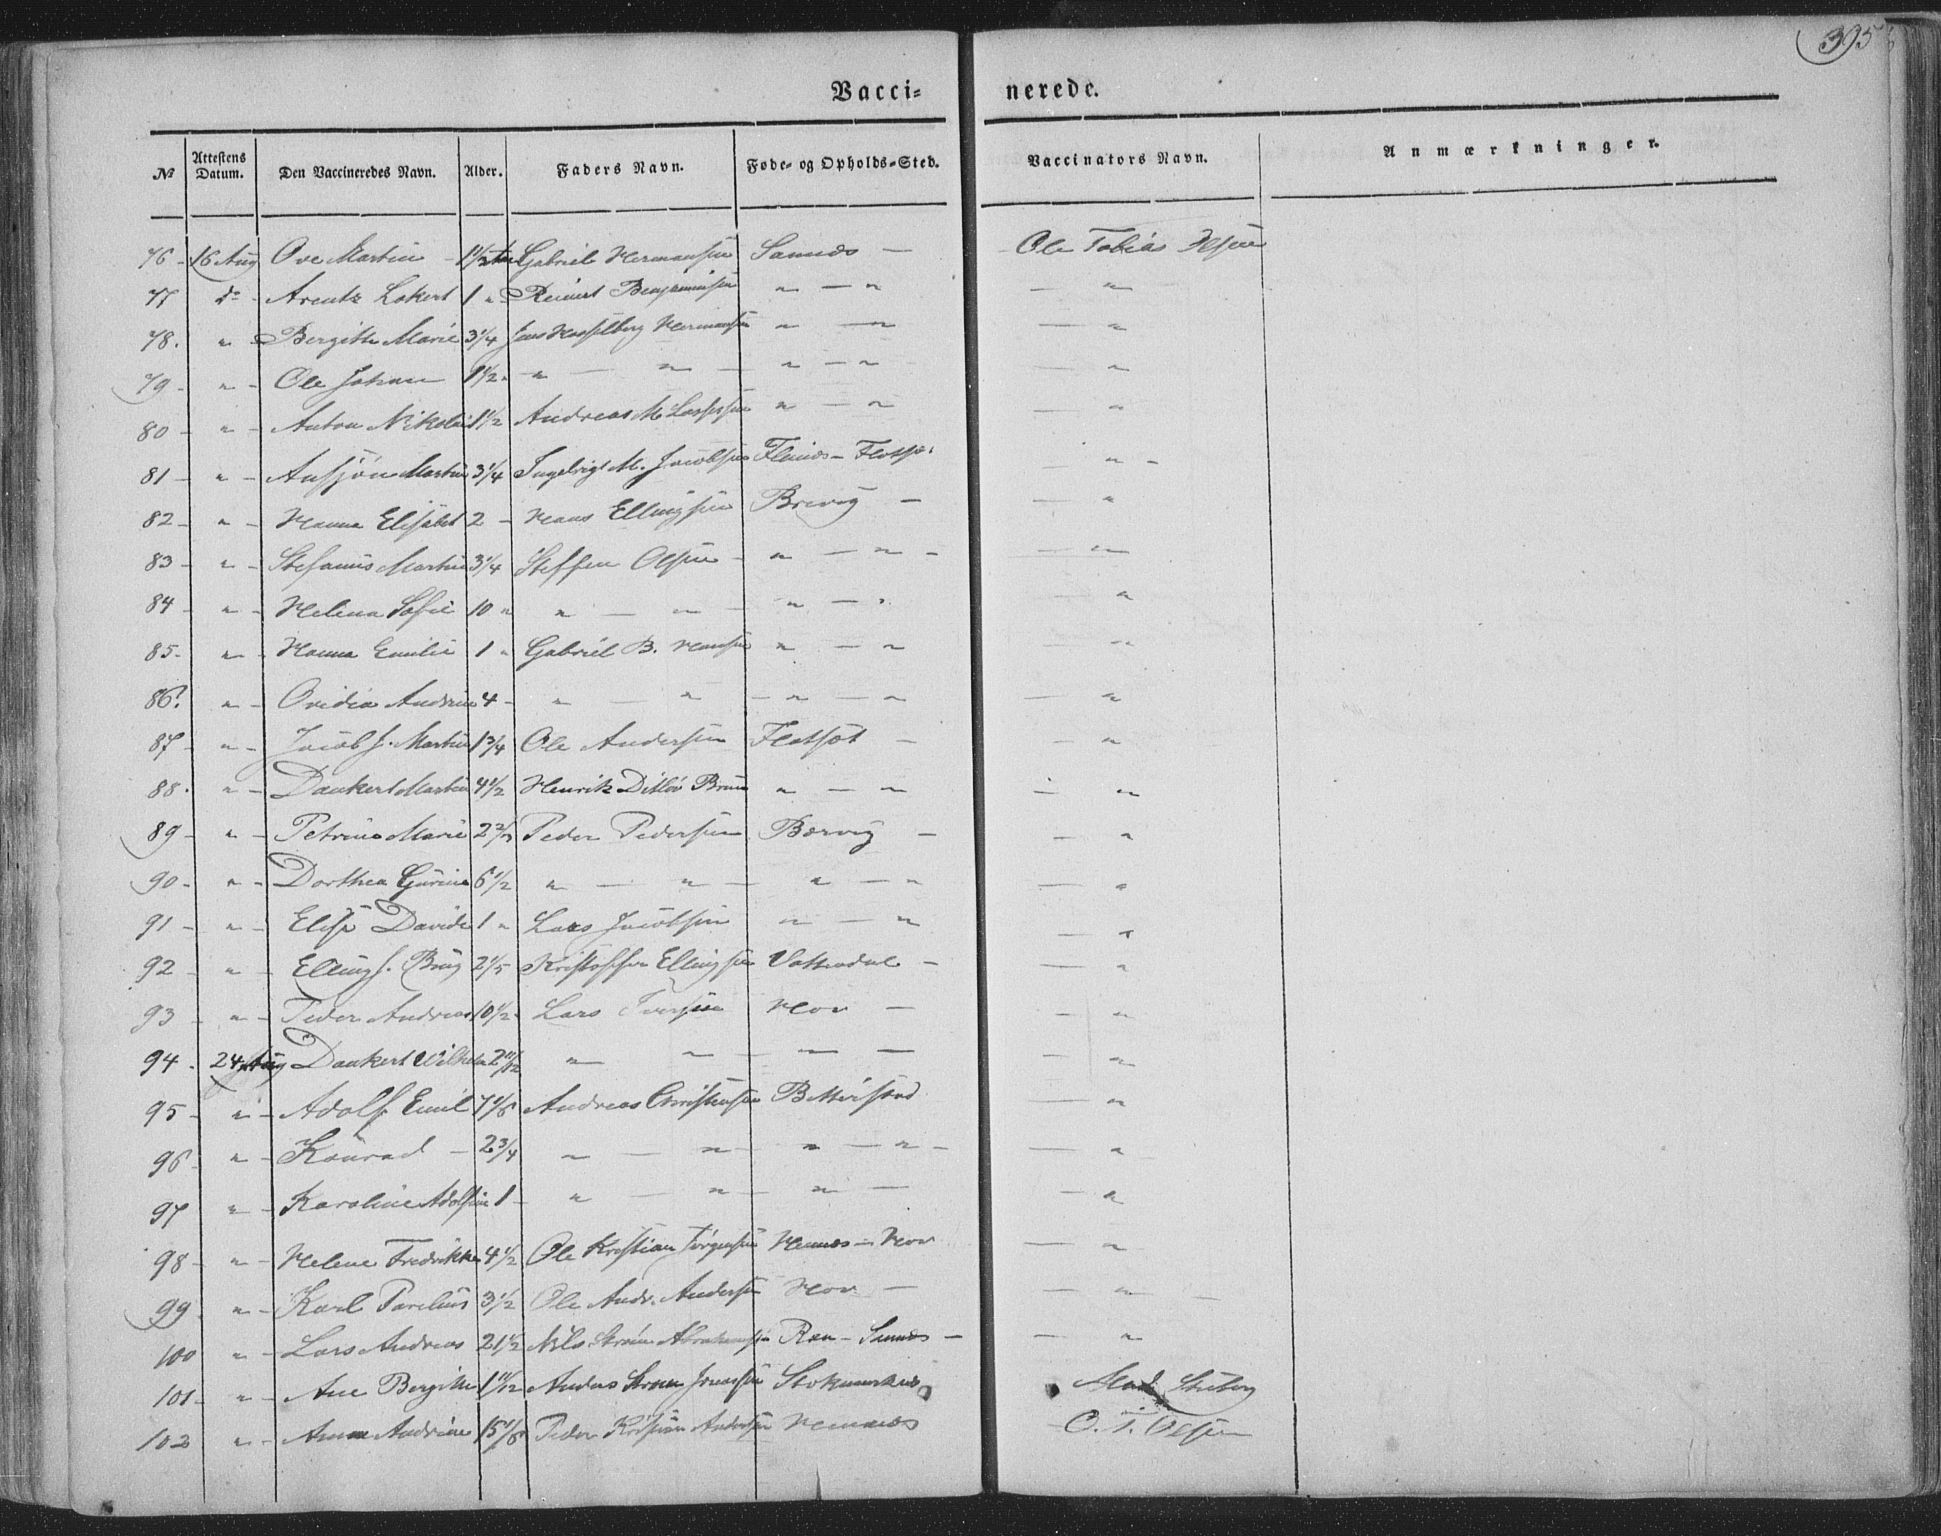 395
Vacci= nerede.
No Attestens Datum. Den Vaccineredes Navn. Alder. Faders Navn. Føde- og Opholds-Sted. Vaccinators Navn. Anmærkninger.
76 - 16 Aug Ove Martin - 1 1/2 Gabriel Hermansen Sannæs - Ole Tobias Olsen
77 do - Arentz Lokert 1 " Reinert Benjaminsen " - " - "
78. " - Bergithe Marie 3 1/4 Jens Hasselberg Hermansen " - " - "
79 - " - Ole Johan 1 1/2 " " - " - " - " - "
80 - " - Anton Nikolai 1 1/2 Andreas M. " - " - "
81 - " - Martin 3 1/4 Ingebrigt M. Jacobsen - " -
82 - " - Hanna Elisabet 2 - Hans Ellingsen Brevig - - "
83 - " - Stefanus Martin 3 1/4 Steffen Olsen - " - " - - "
84 " - Helena Sofie 10 " " - " - " - " - "
85 - " - Hanna Emilie 1 " Gabriel B. Hansen " - " - "
86. " - Ovidia Andrine 4 - " - " - " - " - "
87 - " - Jacob J. Martin 1 3/4 Ole Andersen Flatset - - "
88. " - Dankert Martin 4 1/2 Henrik Ditlev Bruun " - " - "
89 - " - Petrine Marie 2 Peder Pedersen Børvig - - "
90 - " - Dorthea Gurine 6 1/2 " - " - " - " - "
91 - " - Elise Davida 1 " Lars Jacobsen " - " - "
92 - " - Elling J. 2 1/5 Kristoffer Ellingsen Vatterdal - - "
93 - " - Peder Andreas 10 1/2 - Lars Iversen Hov - - "
94. 24 Aug Dankert Wilhelm 2 11/12 " - - - - "
95 - " - Adolf Emil 7 1/6 Andreas Christensen - "
96 - " - Konrad - 2 3/4 " - " - " - " - - "
97 " - Karoline Adolfine 1 - " - " - " - - "
98 - " - Helene Fredrikke 4 1/2 Ole Kristian Jørgensen Hennæs - Hov - "
99 " - Karl Parelius 3 1/2 Ole Andr. Andersen Hov - - " -
100 " - Lars Andreas 2 1 1/2 Nils Strøm Abrahamsen - Sannæs - - "
101 - " - Ane Bergithe 1 11/12 Anders Strøm Jonassen Stokmarknes
102 " - Anna Andrine 15 1/6 Peder Kristian Andersen Hennæs O. T. Olsen